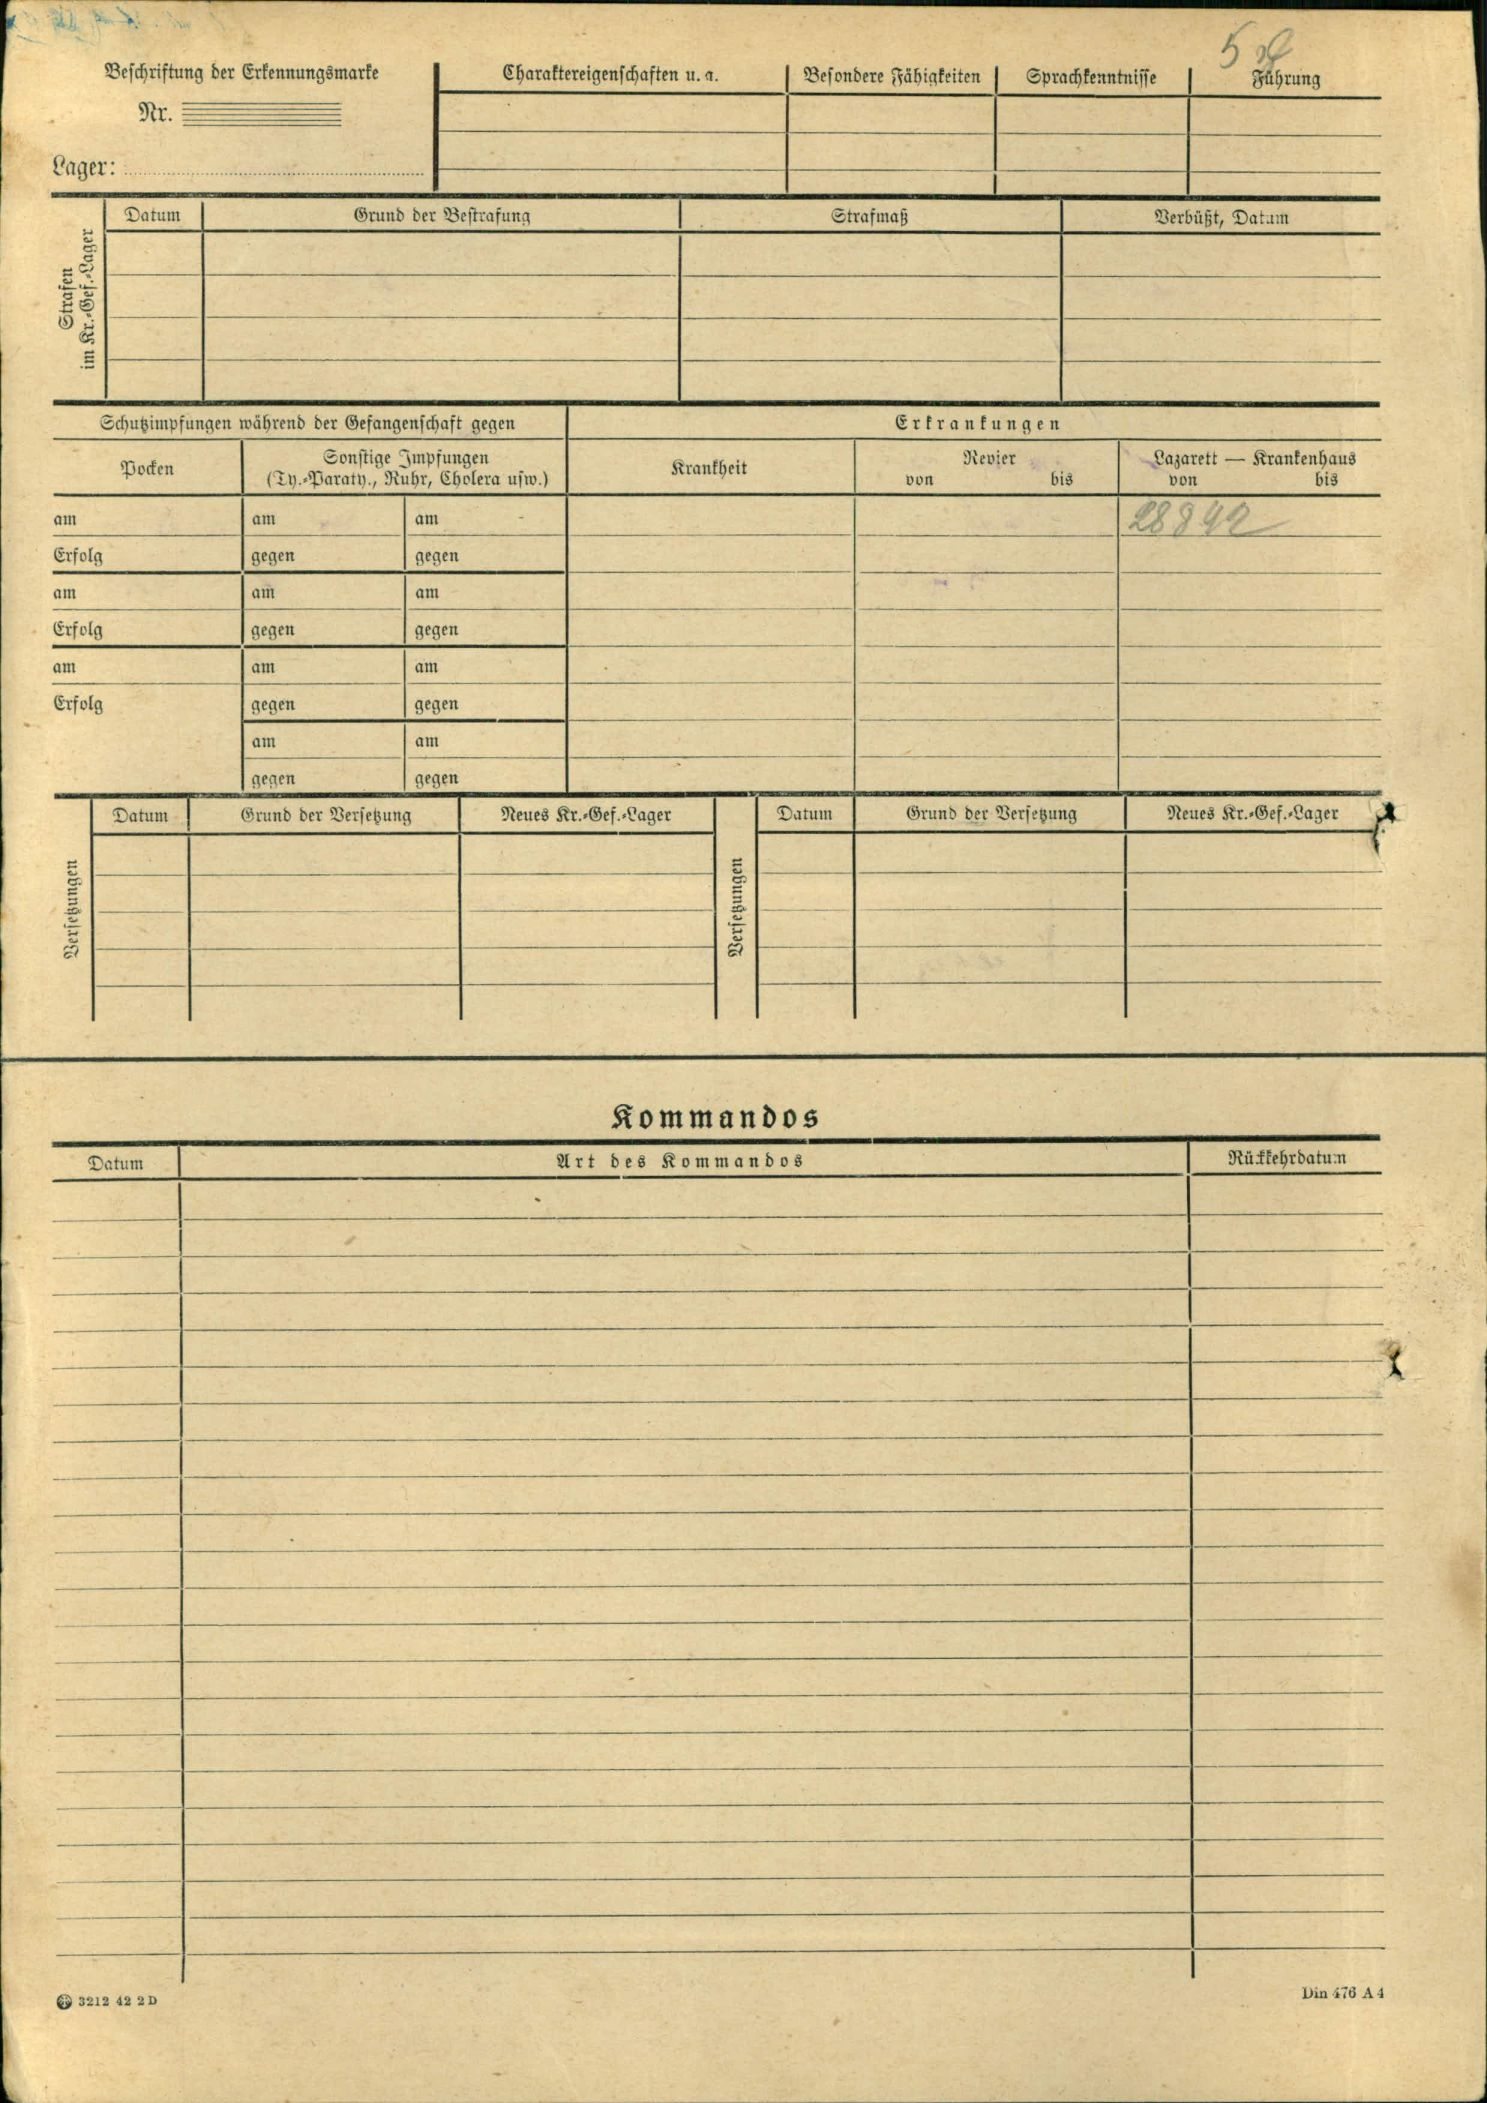 Beschriftung der Erkennungsmarke
Nr.
Lager:
Charaktereigenschaften u. a.
Besondere Fähigkeiten
Sprachkenntnisse
5
Führung
Strafen
im Kr.-Gef.-Lager
Datum
Grund der Bestrafung
Strafmaß
Verbüßt, Datum
Schutzimpfungen während der Gefangenschaft gegen
Erkrankungen
Pocken
Sonstige Impfungen
(Ty.-Paraty., Ruhr, Cholera usw.)
Krankheit
Revier
von bis
Lazarett — Krankenhaus
von bis
am am am
28 8 42
Erfolg gegen gegen
am am am
Erfolg gegen gegen
am am am
Erfolg gegen gegen
am am
gegen gegen
Versetzungen
Datum
Grund der Versetzung
Neues Kr.-Gef.-Lager
Versetzungen
Datum
Grund der Versetzung
Neues Kr.-Gef.-Lager
Kommandos
Datum
Art des Kommandos
Rückkehrdatum
3212 42 2 D
Din 476 A 4